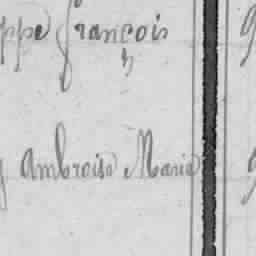 ppe françois
y Ambroise Marie